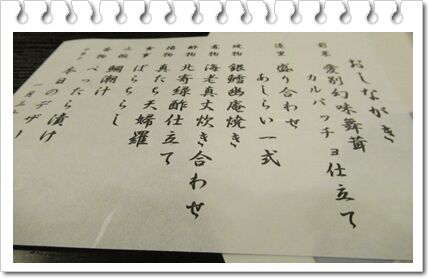 おしながき
前菜 愛別幻味舞茸
カルパッチョ仕立て
造里 盛り合わせ
あしらい一式
焼物 銀鱈幽庵焼き
煮物 海老真丈炊き合わせ
酢物 北寄緑酢仕立て
揚物 真たち天婦羅
食事 ばらちらし
止椀 鯛潮汁
香物 べったら漬け
本日のデザート